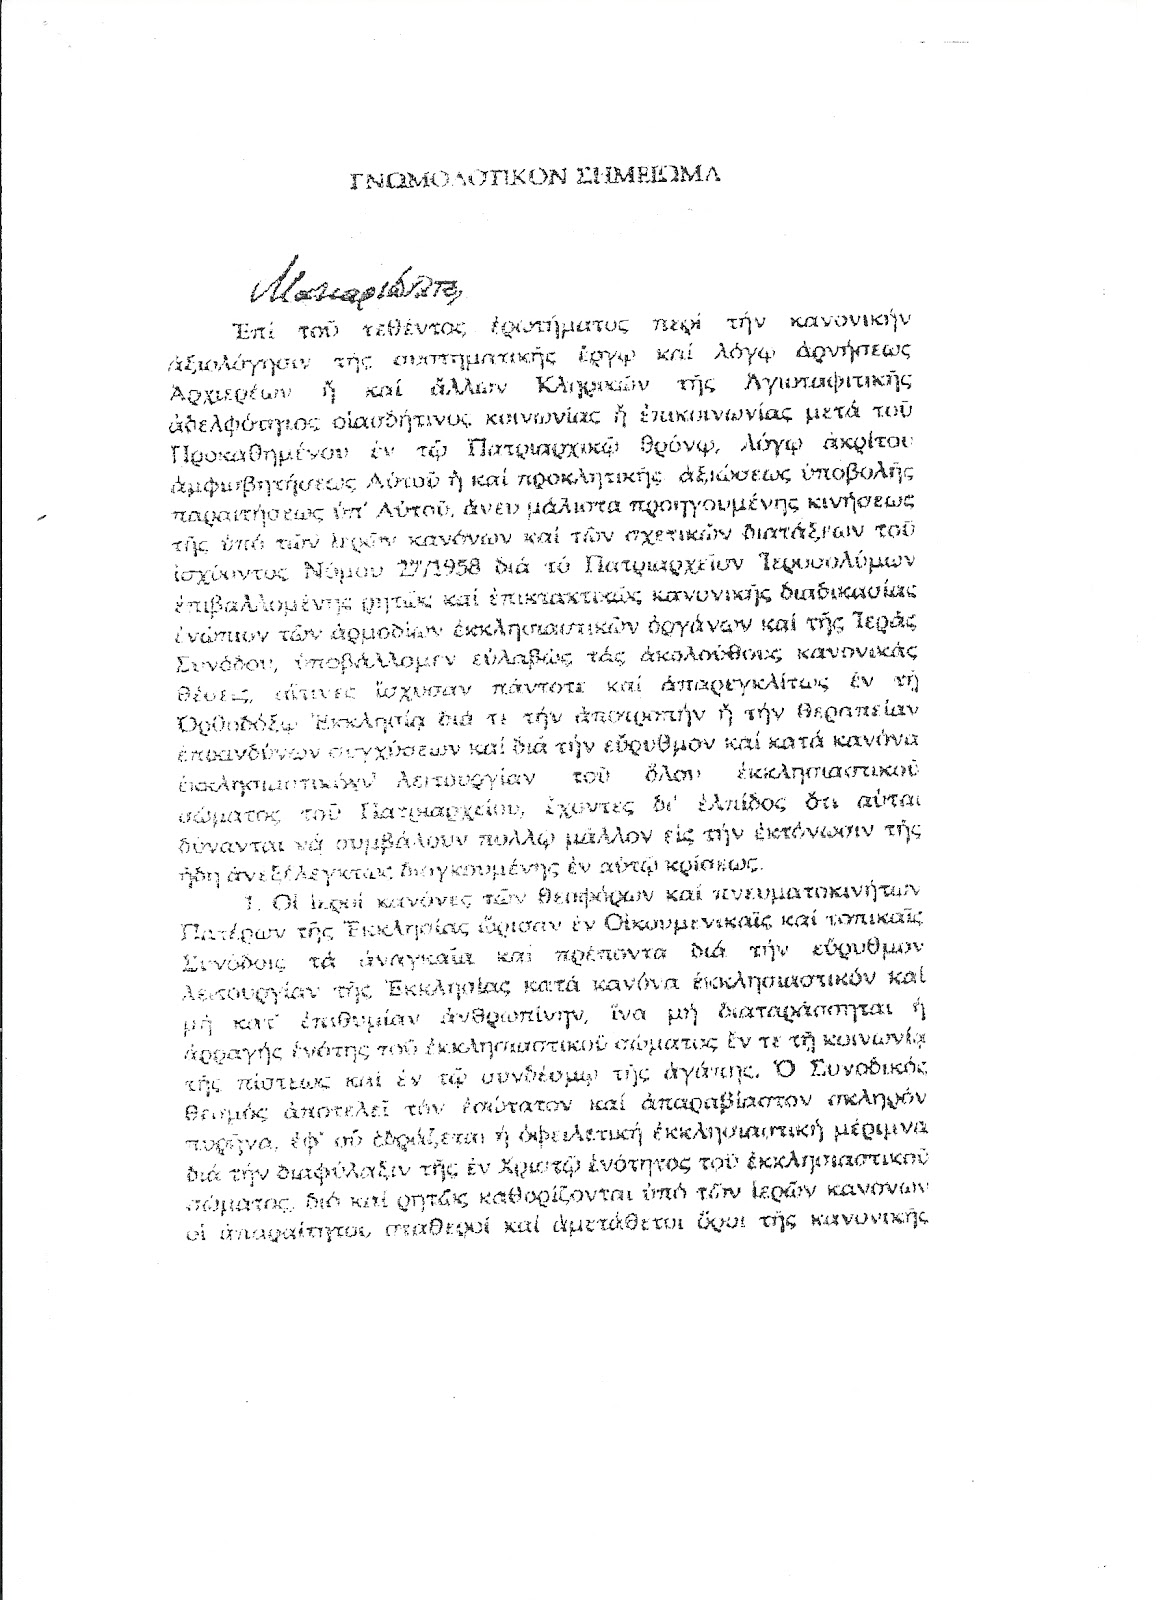 ΓΝΩΜΟΔΟΤΙΚΟΝ ΣΗΜΕΙΩΜΑ
Μακαριώτατε,
Ἐπί τοῦ τεθέντος ἐρωτήματος περί τήν κανονικήν
ἀξιολόγησιν τῆς συστηματικῆς ἔργῳ καί λόγῳ ἀρνήσεως
Ἀρχιερέων ἤ καί ἄλλων Κληρικῶν τῆς Ἁγιοταφιτικῆς
ἀδελφότητος οἱασδήτινος κοινωνίας ἤ ἐπικοινωνίας μετά τοῦ
Προκαθημένου ἐν τῷ Πατριαρχικῷ θρόνῳ, λόγῳ ἀκρίτου
ἀμφισβητήσεως Αὐτοῦ ἤ καί προκλητικῆς ἀξιώσεως ὑποβολῆς
παραιτήσεως ὑπ' Αὐτοῦ, ἄνευ μάλιστα προηγουμένης κινήσεως
τῆς ὑπό τῶν ἱερῶν κανόνων καί τῶν σχετικῶν διατάξεων τοῦ
ἰσχύοντος Νόμου 27/1958 διά τό Πατριαρχεῖον Ἱεροσολύμων
ἐπιβαλλομένης ρητῶς καί ἐπιτακτικῶς κανονικῆς διαδικασίας
ἐνώπιον τῶν ἁρμοδίων ἐκκλησιαστικῶν ὀργάνων καί τῆς Ἱερᾶς
Συνόδου, ὑποβάλλομεν εὐλαβῶς τάς ἀκολούθους κανονικάς
θέσεις, αἵτινες ἴσχυσαν πάντοτε καί ἀπαρεγκλίτως ἐν τῇ
Ὀρθοδόξῳ Ἐκκλησίᾳ διά τε τήν ἀποτροπήν ἤ τήν θεραπείαν
ἐπωδύνων συγχύσεων καί διά τήν εὔρυθμον καί κατά κανόνα
ἐκκλησιαστικόν λειτουργίαν τοῦ ὅλου ἐκκλησιαστικοῦ
σώματος τοῦ Πατριαρχείου, ἔχοντες δι' ἐλπίδος ὅτι αὗται
δύνανται νά συμβάλουν πολλῷ μᾶλλον εἰς τήν ἐκτόνωσιν τῆς
ἤδη ἀνεξελέγκτως διογκουμένης ἐν αὐτῷ κρίσεως.
1. Οἱ ἱεροί κανόνες τῶν θεοφόρων καί πνευματοκινήτων
Πατέρων τῆς Ἐκκλησίας ὥρισαν ἐν Οἰκουμενικαῖς καί τοπικαῖς
Συνόδοις τά ἀναγκαῖα καί πρέποντα διά τήν εὔρυθμον
λειτουργίαν τῆς Ἐκκλησίας κατά κανόνα ἐκκλησιαστικόν καί
μή κατ' ἐπιθυμίαν ἀνθρωπίνην, ἵνα μή διαταράσσηται ἡ
ἀρραγής ἑνότης τοῦ ἐκκλησιαστικοῦ σώματος ἔν τε τῇ κοινωνίᾳ
τῆς πίστεως καί ἐν τῷ συνδέσμῳ τῆς ἀγάπης. Ὁ Συνοδικός
θεσμός ἀποτελεῖ τόν ἐσώτατον καί ἀπαραβίαστον σκληρόν
πυρῆνα, ἐφ' οὗ ἑδράζεται ἡ ὀφειλετική ἐκκλησιαστική μέριμνα
διά τήν διαφύλαξιν τῆς ἐν Χριστῷ ἑνότητος τοῦ ἐκκλησιαστικοῦ
σώματος, διό καί ρητῶς καθορίζονται ὑπό τῶν ἱερῶν κανόνων
οἱ ἀπαραίτητοι, σταθεροί καί ἀμετάθετοι ὅροι τῆς κανονικῆς